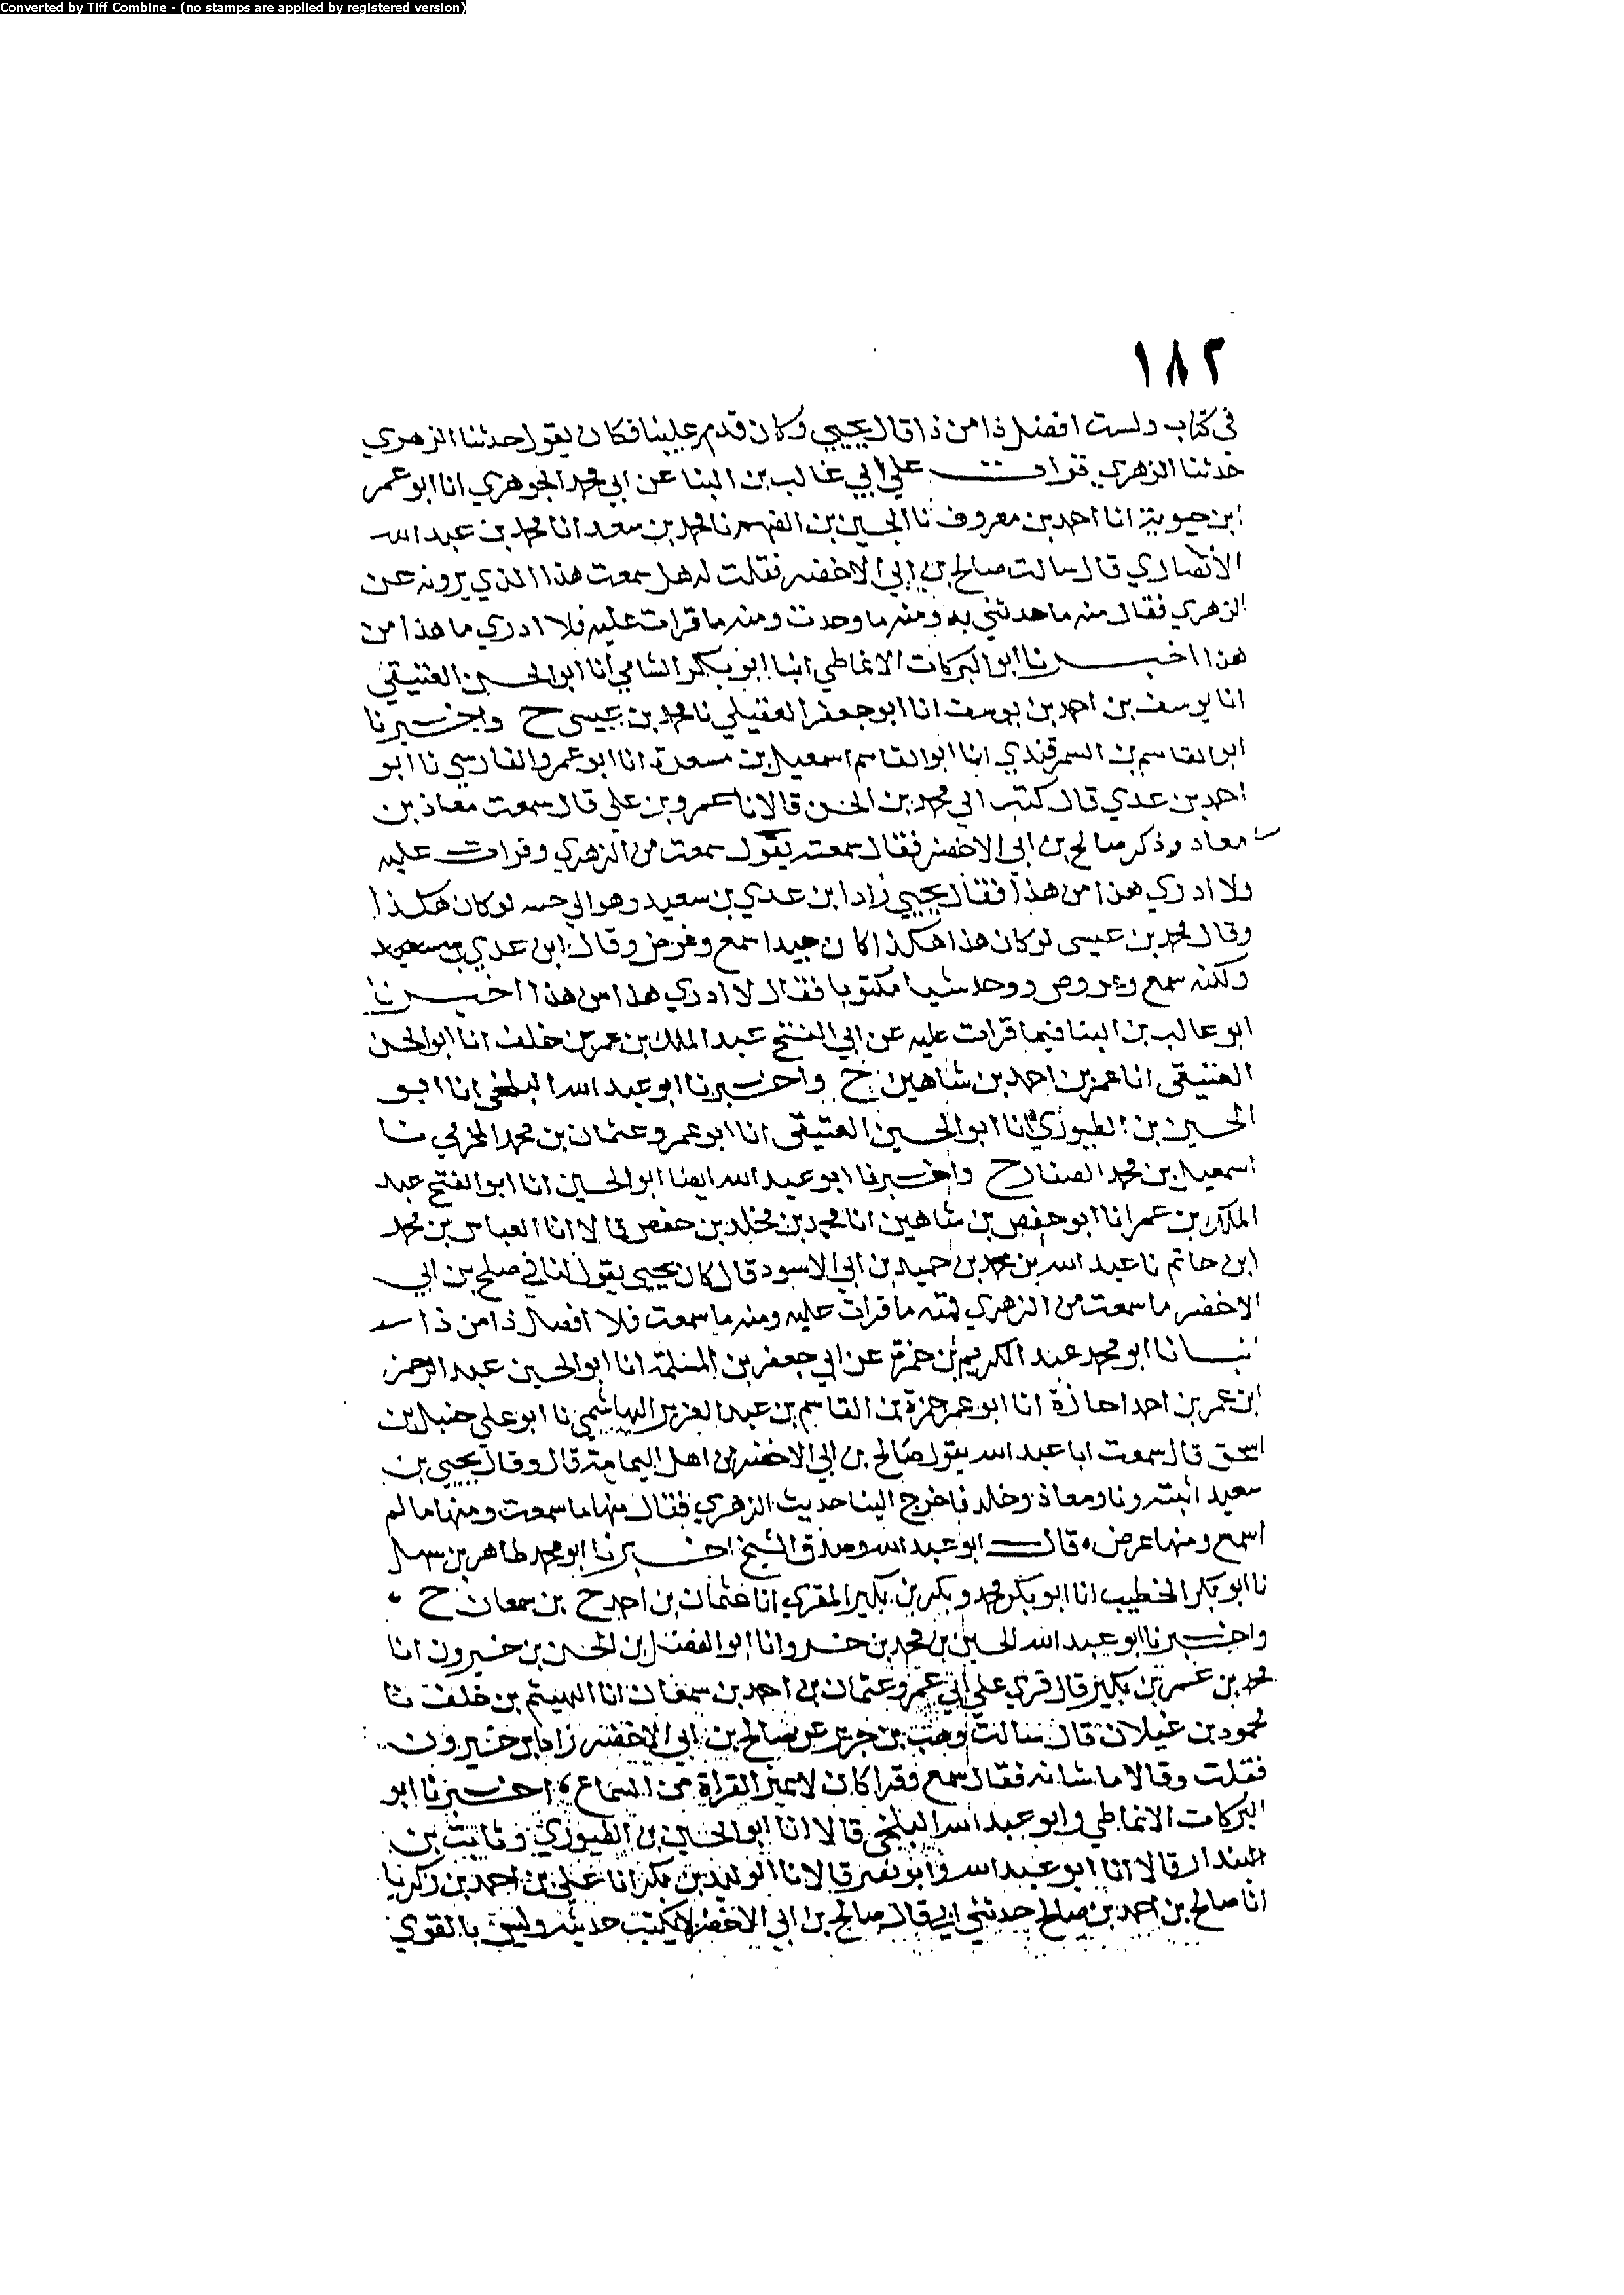 Converted by Tiff Combine - (no stamps are applied by registered version)
١٨٢
في كتاب ولست افصل ذا من ذا قال يحيي وكان قدم علينا فكان يقول حدثنا الزهري
حدثنا الزهري قرات علي ابي غالب بن البنا عن ابي محمد الجوهري انا ابو عمر
ابن حيوية انا احمد بن معروف نا الحسين بن الفهم نا محمد بن سعد انا محمد بن عبد الله
الانصاري قال سالت صالح بن ابي الاخضر فقلت له هل سمعت هذا الذي يرونه عن
الزهري فقال منه ما حدثني به ومنه ما وجدت ومنه ما قرات عليه فلا ادري ما هذا من
هذا اخبرنا ابو البركات الانماطي انبا ابو بكر الشامي انا ابو الحسين العتيقي
انا يوسف بن احمد بن يوسف انا ابو جعفر العقيلي نا محمد بن عيسى ح واخبرنا
ابو القاسم بن السمرقندي انبا ابو القاسم اسمعيل بن مسعدة انا ابو عمرو الفارسي نا ابو
احمد بن عدي قال كتب الي محمد بن الحسن قالا نا عمرو بن علي قال سمعت معاذ بن
معاد وذكر صالح بن ابي الاخضر فقال سمعته يقول سمعت من الزهري وقرات عليه
ولا ادري هذا من هذا فقال يحيي زاد ابن عدي بن سعيد وهو الي جنبه لو كان هكذا
وقال محمد بن عيسى لو كان هذا هكذا كان جيدا سمع وعرض وقال ابن عدي بن سعيد
ولكنه سمع وعرض ووجد شيا مكتوبا فقال لا ادري هذا من هذا اخبرنا
ابو غالب بن البنا فيما قرات عليه عن ابي الفتح عبد الملك بن عمر بن خلف انا ابو الحسن
العتيقي انا عمر بن احمد بن شاهين ح واخبرنا ابو عبد الله البلخي انا ابو
الحسين بن الطيوري انا ابو الحسين العتيقي انا ابو عمرو عثمان بن محمد المخرمي نا
اسمعيل بن محمد الصفار ح واخبرنا ابو عبد الله ايضا ابو الحسين انا ابو الفتح عبد
الملك بن عمر انا ابو حفص بن شاهين انا محمد بن مخلد بن حفص قالا انا العباس بن محمد
ابن حاتم نا عبد الله بن محمد بن حميد بن ابي الاسود قال كان يحيى يقول لنا في صلح بن ابي
الاخضر ما سمعت من الزهري فمنه ما قرات عليه ومنه ما سمعت فلا افصل ذا من ذا
انبانا ابو محمد عبد الكريم بن حمزة عن ابي جعفر بن المسلمة انا ابو الحسين عبد الرحمن
ابن عمر بن احمد اجازة انا ابو عمر حمزة بن القاسم بن عبد العزيز الهاشمي نا ابو علي حنبل بن
اسحق قال سمعت ابا عبد الله يقول صالح بن ابي الاخضر من اهل اليمامة قال وقال يحيي بن
سعيد اتيته ونا ومعاذ وخالد فاخرج الينا حديث الزهري فقال منها ما سمعت ومنها ما لم
اسمع ومنها عرض قال ابو عبد الله وصدق الشيخ اخبرنا ابو محمد طاهر بن سهل
نا ابو بكر الخطيب انا ابو بكر محمد وبكر بن بكير المقري انا عثمان بن احمد ح بن سمعان ح
واخبرنا ابو عبد الله الحسين بن محمد بن خسروا انا ابو الفضل بن الحسن بن خيرون انا
محمد بن عمر بن بكير قال قري علي ابي عمرو عثمان بن احمد بن سمعان انا الهيثم بن خلف نا
محمود بن غيلان قال سالت وهب بن جرير عن صالح بن ابي الاخضر زاد ابن خيرون
فقلت وقالا ما شانه فقال سمع وقرا كان لا يميز القراة من السماع اخبرنا ابو
البركات الانماطي وابو عبد الله البلخي قالا انا ابو الحسين بن الطيوري وثابت بن
بندار قالا انا ابو عبد الله وابو نصر قالا نا الوليد بن بكر انا علي بن احمد بن زكريا
انا صالح بن احمد بن صالح حدثني ابي قال صالح بن ابي الاخضر يكتب حديثه وليس بالقوي